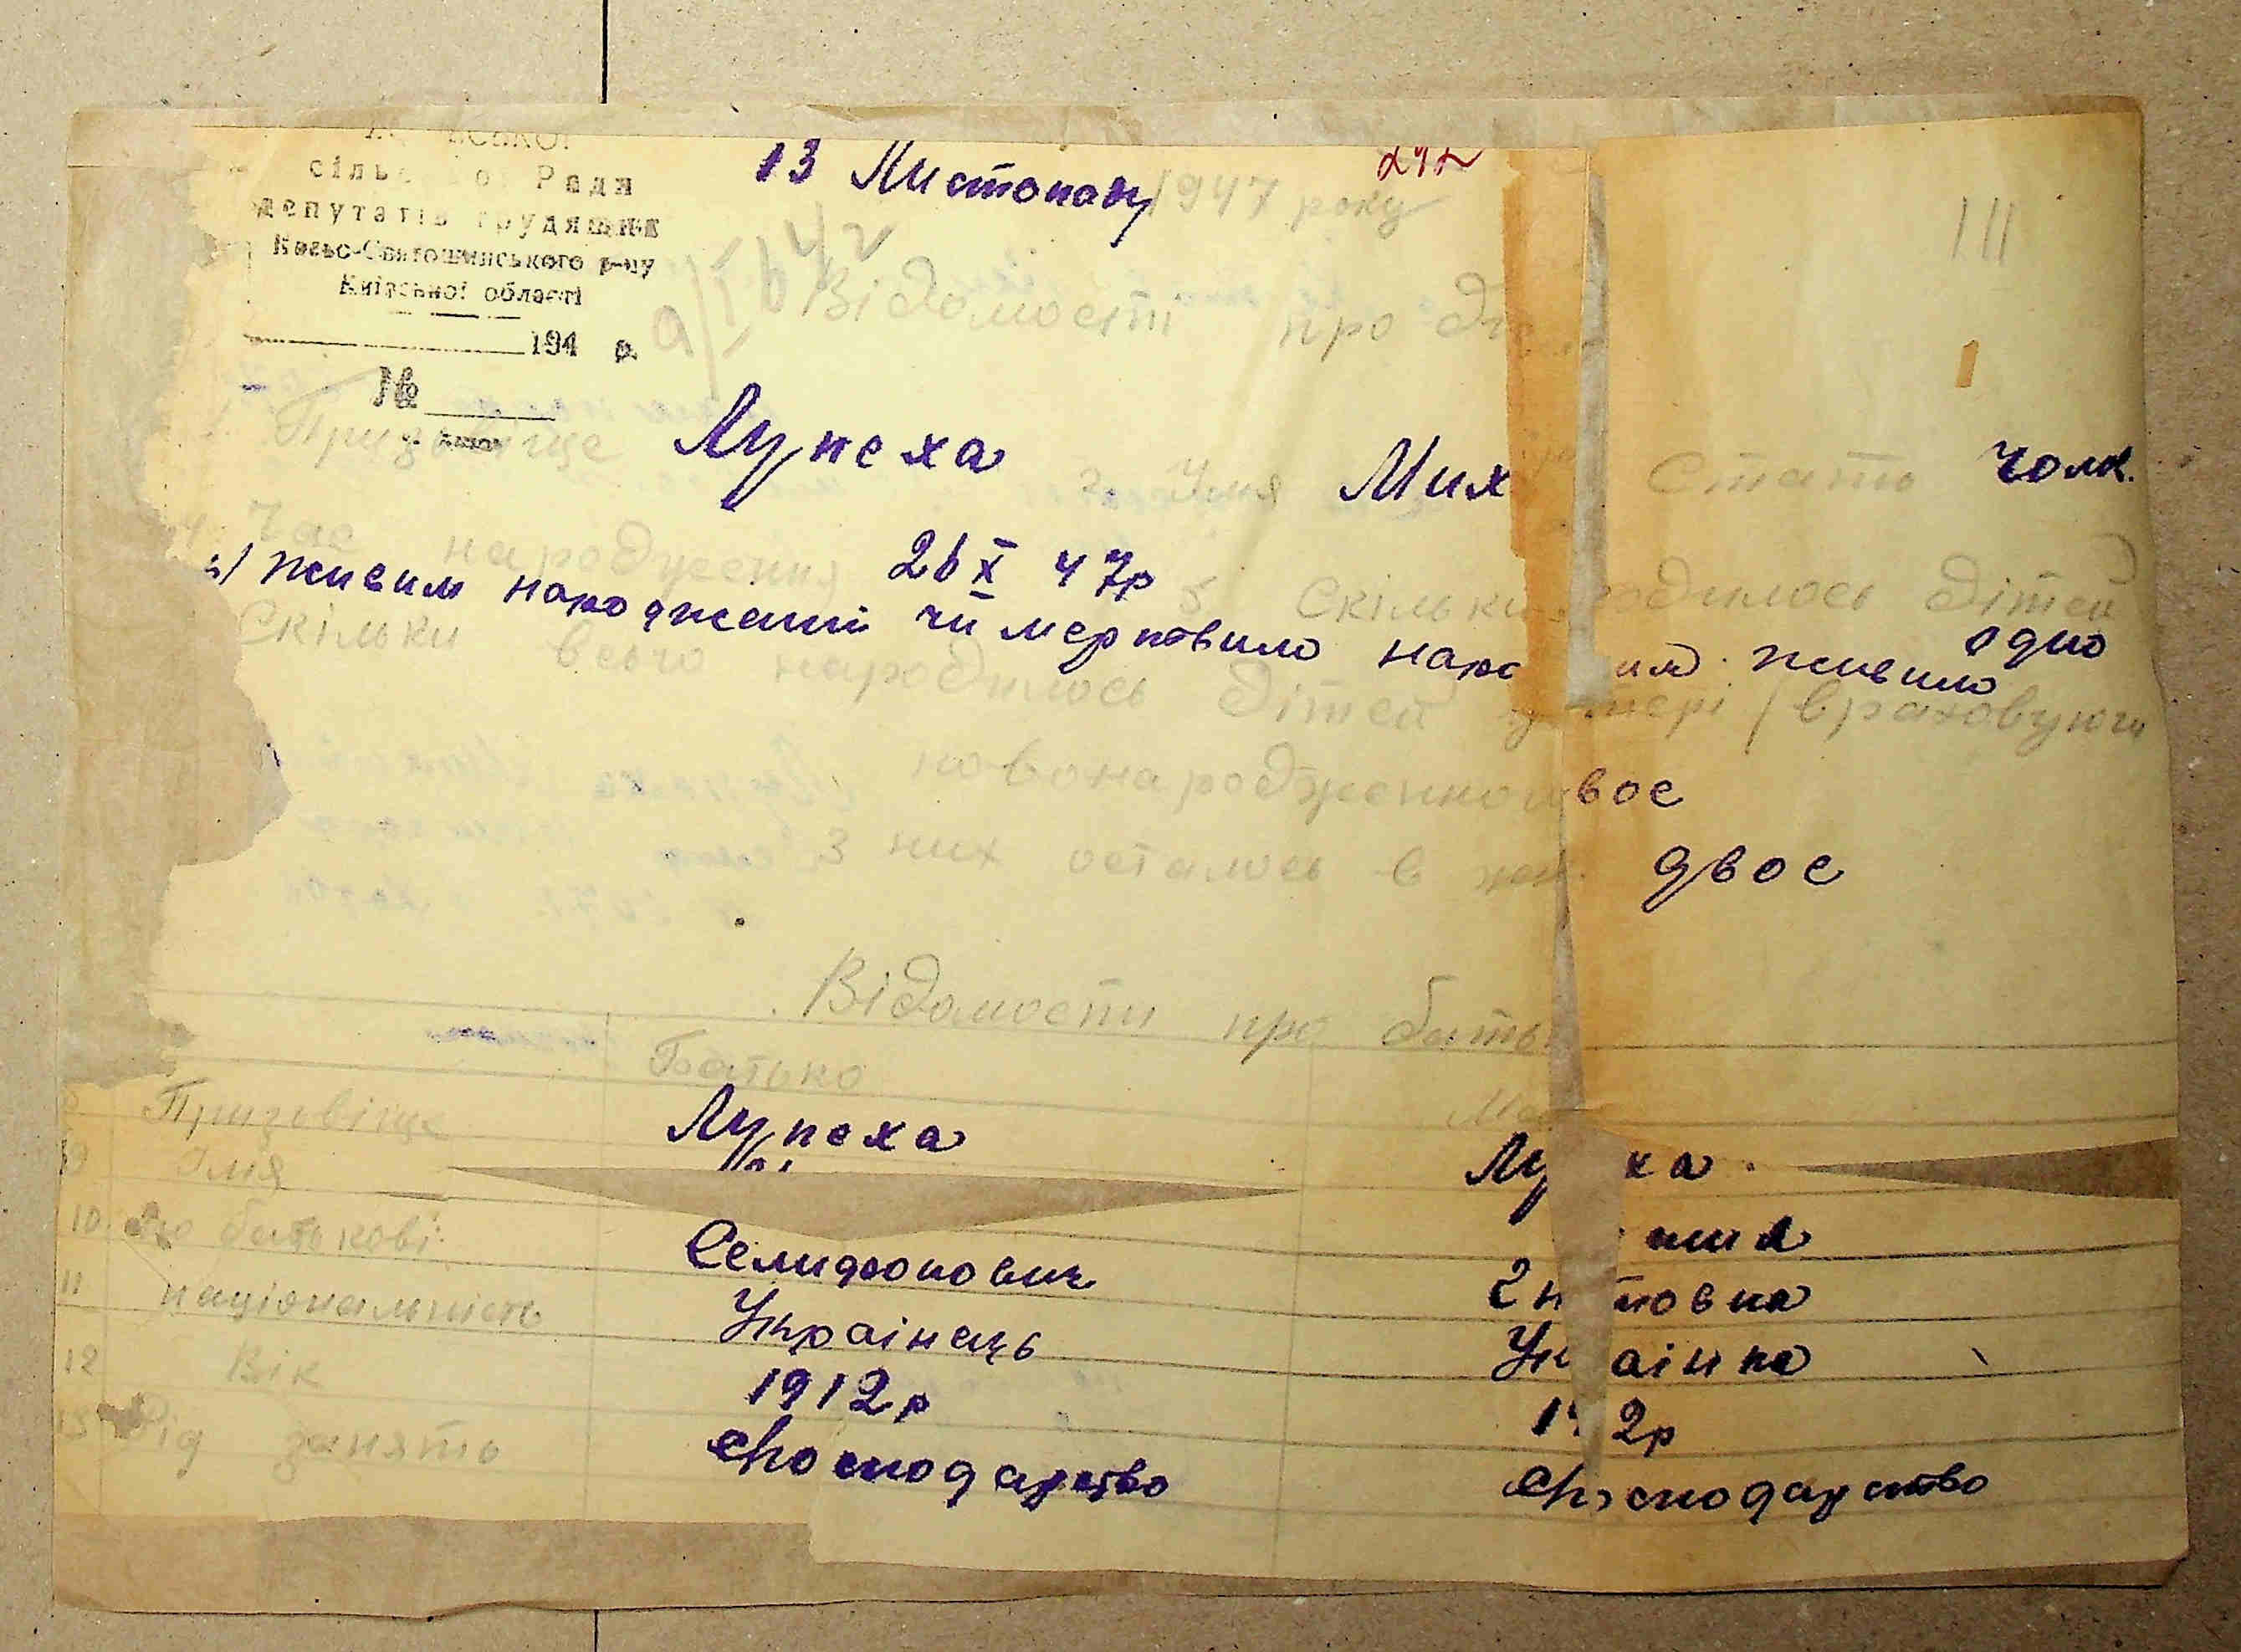 сільс о Ради
депутатів трудящих
Києво-Святошинського р-ну
Київської області
194 р.
№
13 Листопаду 1947 року
242
III
Відомості про ди
1. Призвіще Лупеха 2. Імя Мих Стать Чолк.
4. Час народження 26 X 47р 5 Скільки родилось дітей одно
Живим народжений чи мертвим наро им живим
Скільки всьго народилось дітей у тері / враховуючи
новонародженного двоє
З них осталось в жив двоє
Відомости про бать
Батько Ма
Призвіще Лупеха Лу ха
9 Імя
10 По батькові Семифонович товна
11 національність Українець Ук аінка
12 Вік 1912р 19 2р
13 Рід занять Господарство Господарство